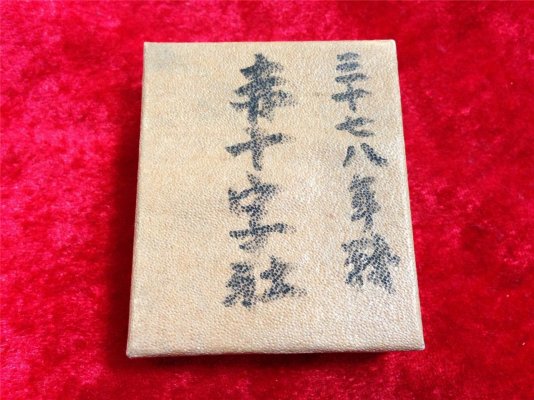 三十七八年戦
赤十字社